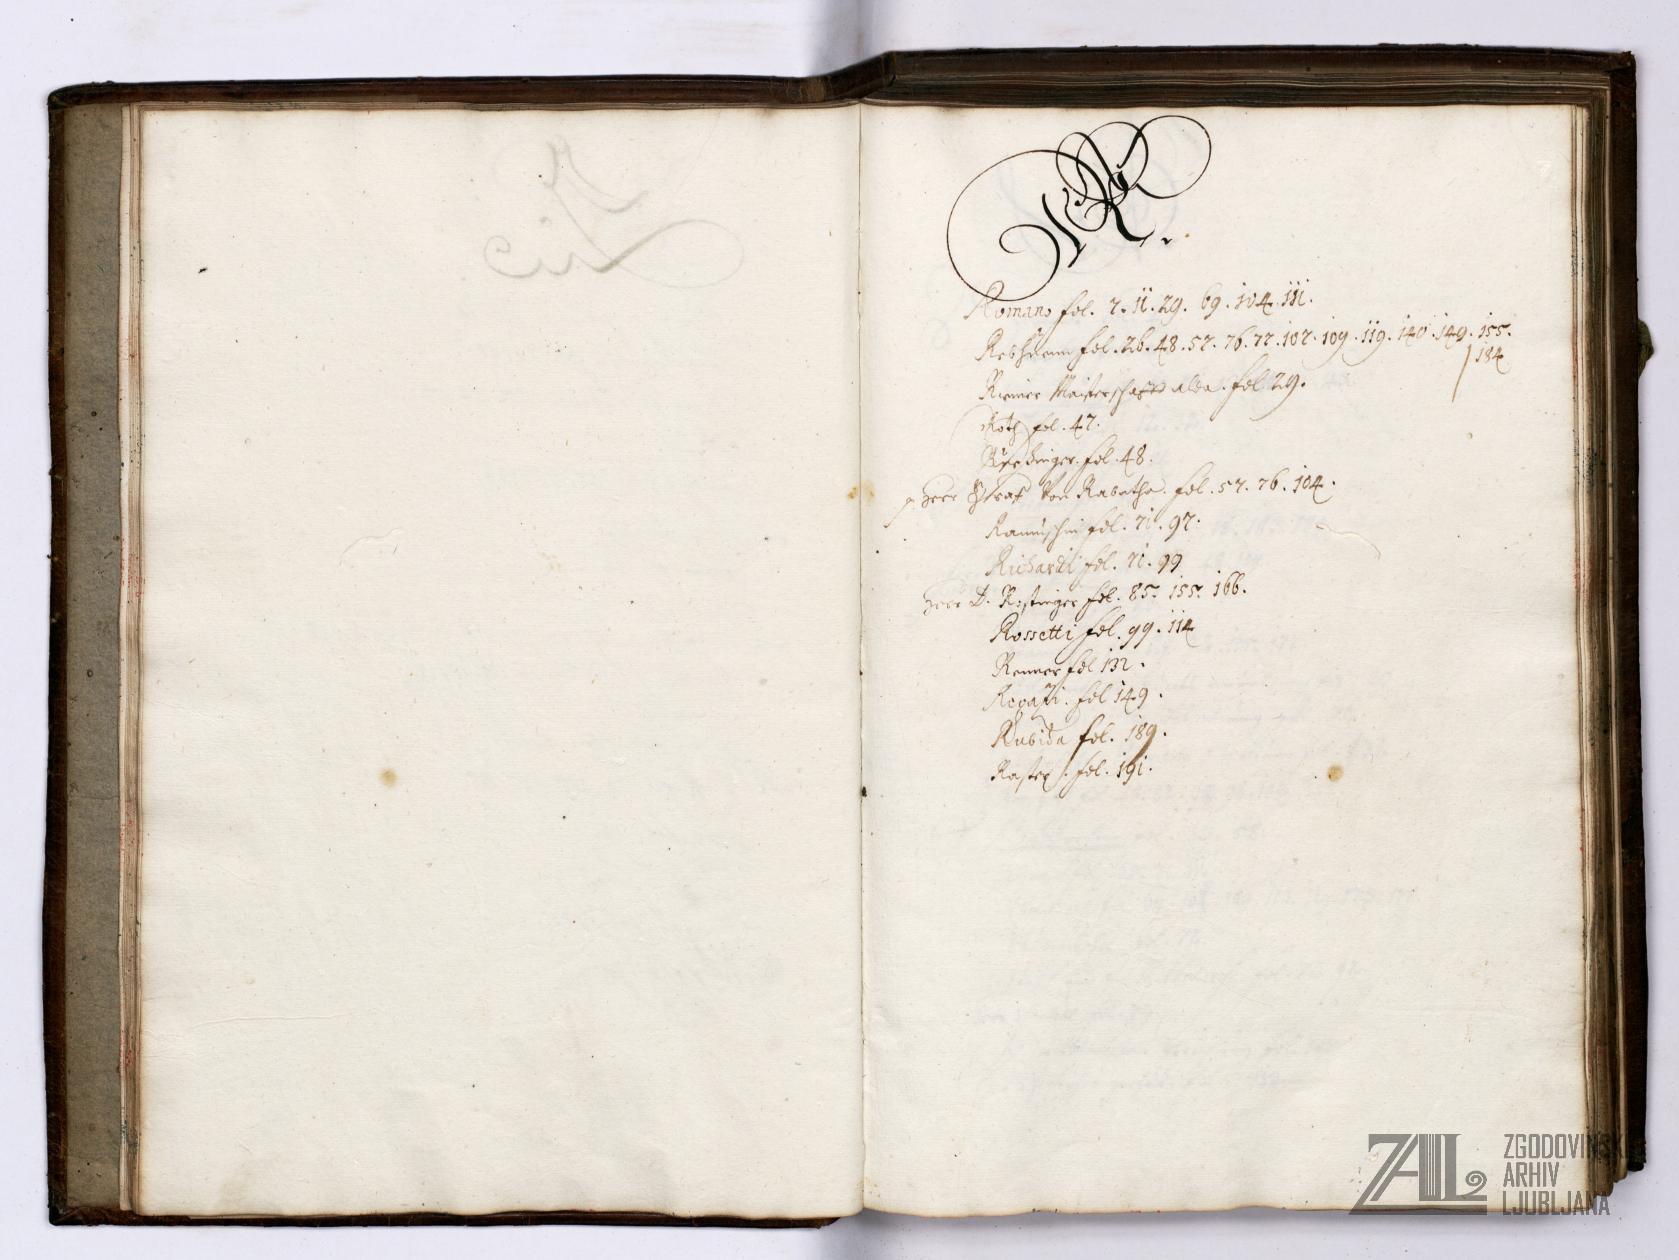 R.
Romano fol. 7. 11. 29. 69. 104. 111.
fol. 26. 48. 57. 76. 77. 107. 109. 119. 140. 149. 155.
184
Riemer Maisterschafft alda. fol. 29.
Roth fol. 47.
fol. 48.
Herr Graf von Rabatha. fol. 57. 76. 104.
fol. 71. 97.
Richardi fol. 71. 99
Herr D. Rostinger fol. 85. 155. 166.
Rossetti fol. 99. 114
Renner fol 132.
fol 149.
Rabida fol. 189.
Raster. fol. 191.
ZAL
ZGODOVINSKI
ARHIV
LJUBLJANA